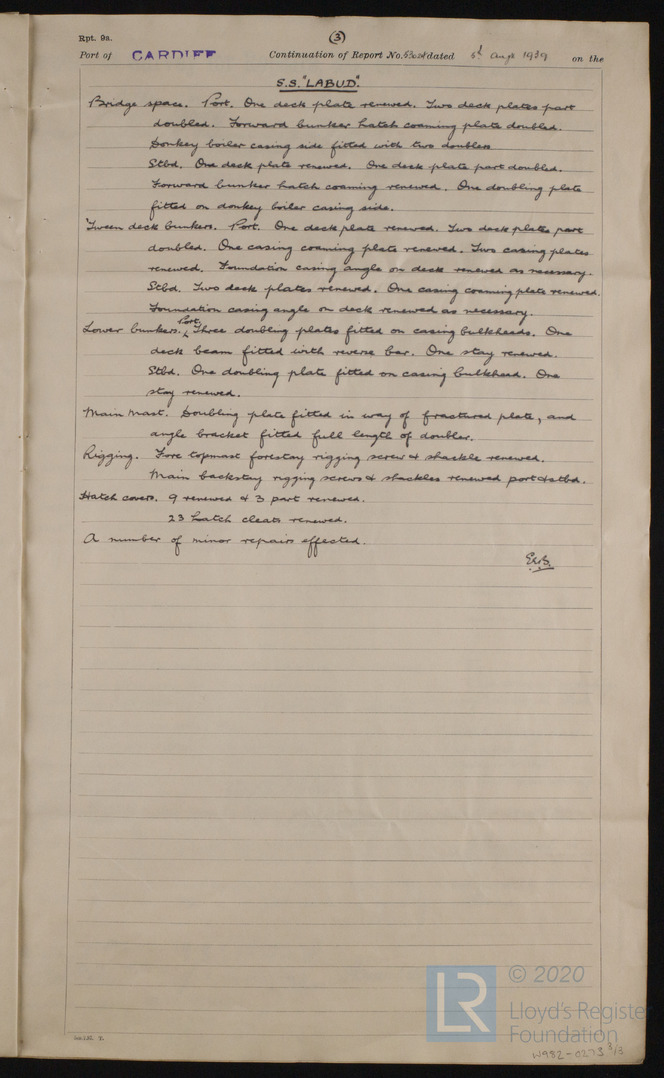 Rpt. 9a.
(3)
Port of CARDIFF Continuation of Report No. dated 5th Aug 1939 on the
S.S. "LABUD".
Bridge space. Port. One deck plate renewed. Two deck plates part
doubled. Forward bunker hatch coaming plate doubled.
Donkey boiler casing side fitted with two doublers
Stbd. One deck plate renewed. One deck plate part doubled.
Forward bunker hatch coaming renewed. One doubling plate
fitted on donkey boiler casing side.
'Tween deck bunkers. Port. One deck plate renewed. Two deck plates part
doubled. One casing coaming plate renewed. Two casing plates
renewed. Foundation casing angle on deck renewed as necessary.
Stbd. Two deck plates renewed. One casing coaming plate renewed.
Foundation casing angle on deck renewed as necessary.
Lower bunkers. Port. Three doubling plates fitted on casing bulkheads. One
deck beam fitted with reverse bar. One stay renewed.
Stbd. One doubling plate fitted on casing bulkhead. One
stay renewed.
Main Mast. Doubling plate fitted in way of fractured plate, and
angle bracket fitted full length of doubler.
Rigging. Fore topmast forestay rigging screw & shackle renewed.
Main backstay rigging screws & shackles renewed port & stbd.
Hatch covers. 9 renewed & 3 part renewed.
23 hatch cleats renewed.
A number of minor repairs effected.
© 2020
LR
Lloyd's Register
Foundation
W982-0273 3/3